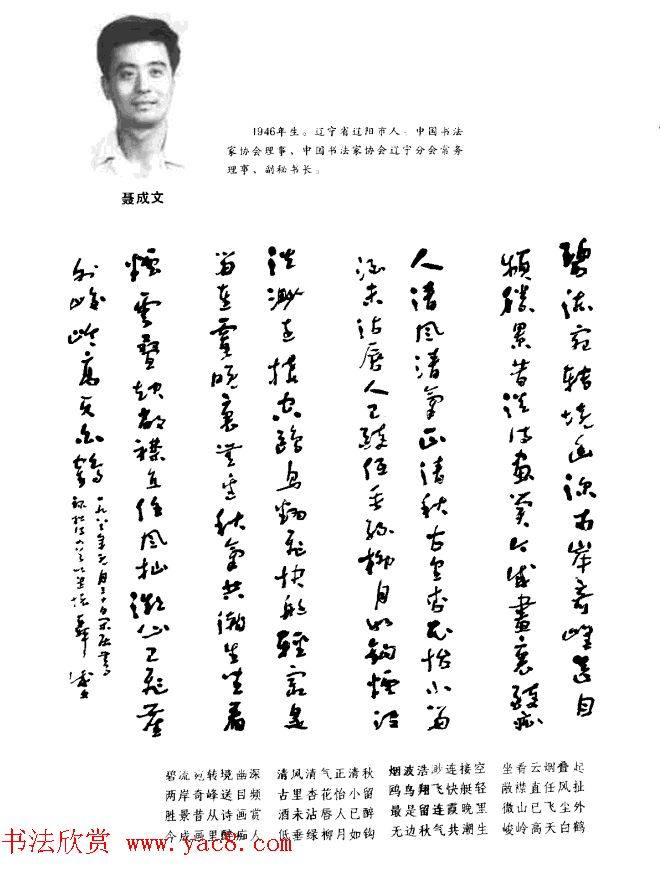 1946年生。辽宁省辽阳市人。中国书法
家协会理事、中国书法家协会辽宁分会常务
理事、副秘书长。
聂成文
碧流宛转境幽深两岸奇峰送目
频胜景昔从诗画赏今成画里醉痴
人清风清气正清秋古里杏花怡小留
酒未沾唇人已醉低垂绿柳月如钩烟波
浩渺连接空鸥鸟翔飞快艇轻最是
留连霞晚里无边秋气共潮生坐看
烟云叠起敞襟直任风扯微山已飞尘
外峻岭高天白鹤
碧流宛转境幽深 清风清气正清秋 烟波浩渺连接空 坐看云烟叠起
两岸奇峰送目频 古里杏花怡小留 鸥鸟翔飞快艇轻 敞襟直任风扯
胜景昔从诗画赏 酒未沾唇人已醉 最是留连霞晚里 微山已飞尘外
今成画里醉痴人 低垂绿柳月如钩 无边秋气共潮生 峻岭高天白鹤
书法欣赏 www.yac8.com